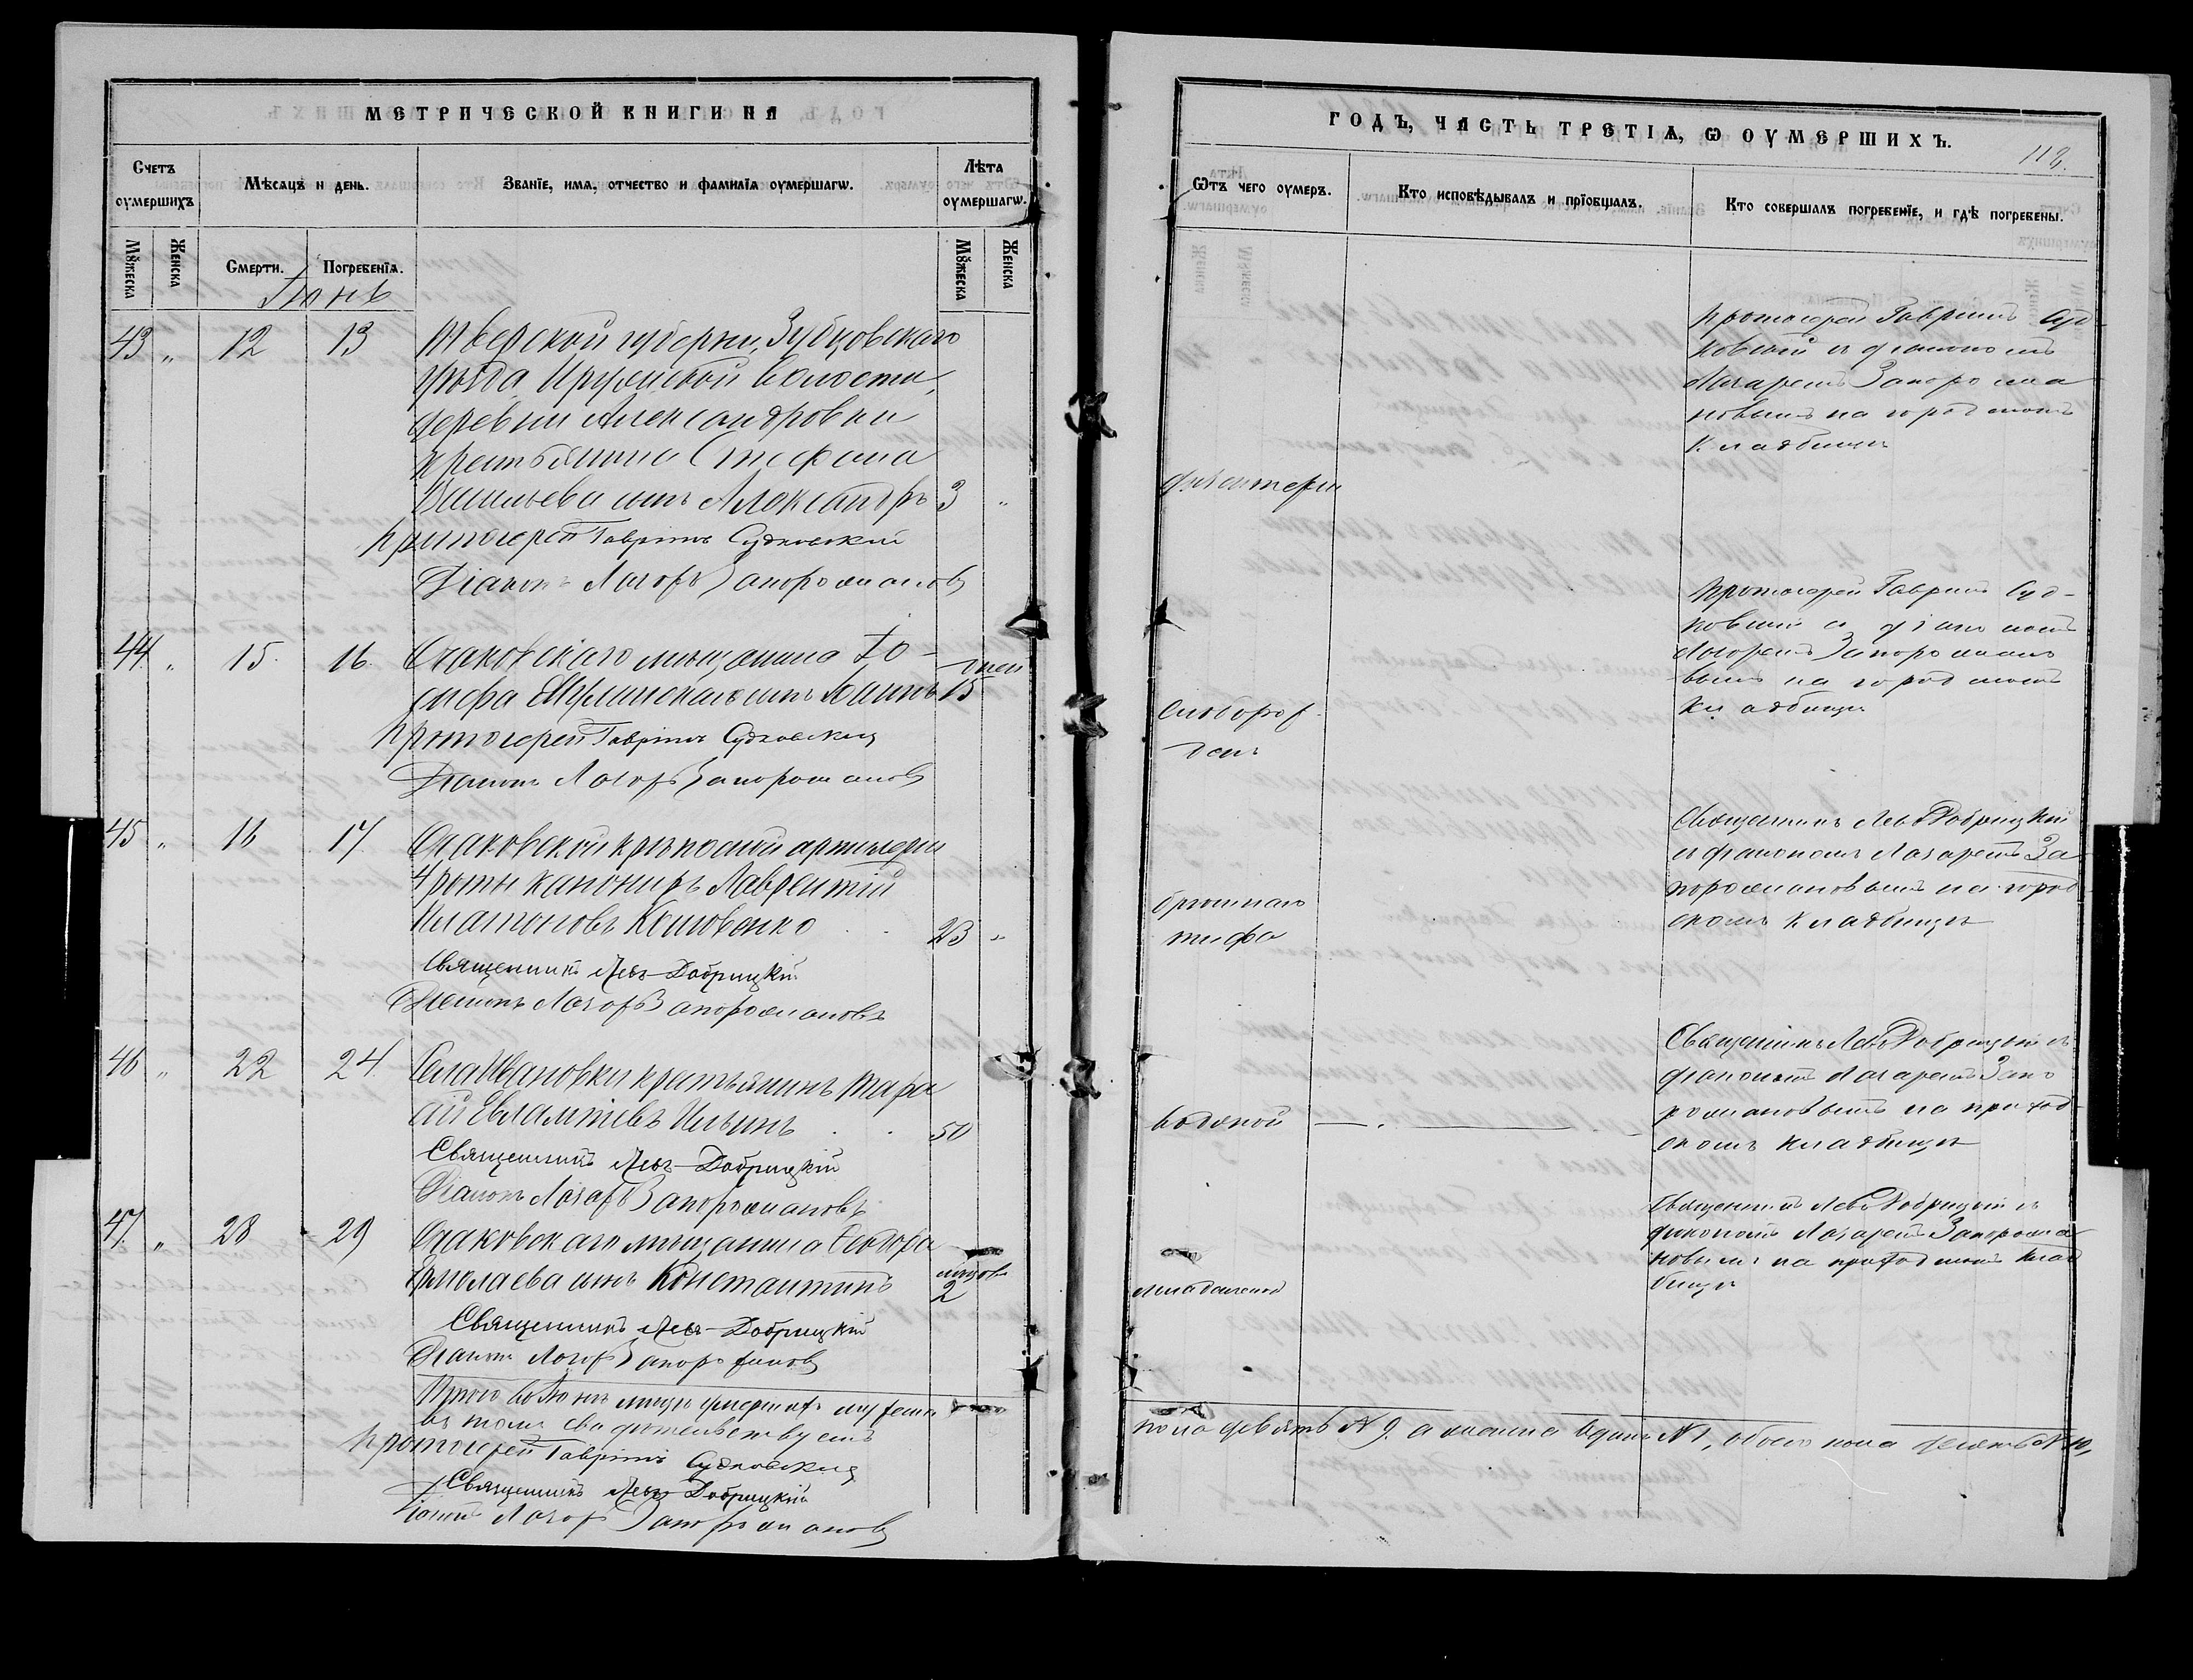 МЕТРИЧЕСКОЙ КНИГИ НА
Счетъ оумершихъ
Мѣсяцъ и день.
Званїе, имя, отчество и фамилїа оумершагѡ.
Лѣта оумершагѡ.
Мꙋжеска
Женска
Смерти.
Погребенїя.
Мꙋжеска
Женска
Іюнь
43 „ 12 13 Тверской губерніи, Зубцовскаго
уѣзда, волости,
деревни Александровки
крестьянина Стефана
Васильева сынъ Александръ 3 „
Протоіерей Гавріилъ Судковскій
Діаконъ Лазарь Запорожановъ
44. „ 15. 16. Очаковскаго мѣщанина Іо-
сифа сынъ Іоаннъ дней 15
Протоіерей Гавріилъ Судковскій
Діаконъ Лазарь Запорожановъ
45 „ 16 17. Очаковской крѣпосной артилеріи
4 роты канониръ Лаврентій
Платоновъ 23 „
Священникъ Левъ Добрицкій
Діаконъ Лазарь Запорожановъ
46 „ 22 24. Села Ивановки крестьянинъ Тара
сій Евлампіевъ Ильинъ 50
Священникъ Левъ Добрицкій
Діаконъ Лазарь Запорожановъ
47. „ 28 29 Очаковскаго мѣщанина Ѳеодора
Ермолаева сынъ Константинъ 2
Священникъ Левъ Добрицкій
Діаконъ Лазарь Запорожановъ
Итого въ Іюнѣ мѣсяцѣ умершихъ мужеска
въ томъ свидѣтельствуемъ
Протоіерей Гавріилъ Судковскій
Священникъ Левъ Добрицкій
Діаконъ Лазарь Запорожановъ
ГОДЪ, ЧАСТЬ ТРЕТІѦ, Ѡ ОУМЕРШИХЪ.
118.
Ѿтъ чего оумеръ.
Кто исповѣдывалъ и прїобщалъ.
Кто совершалъ погребенїе, и гдѣ погребены.
Протоіерей Гавріилъ Суд-
ковскій съ діакономъ
Лазаремъ Запорожа
новымъ на городскомъ
кладбищѣ
Протоіерей Гавріилъ Суд-
ковскій съ діакономъ
Лазаремъ Запорожано
вымъ на городскомъ
кладбищѣ
слаборож-
денъ
Священникъ Левъ Добрицкій
съ діакономъ Лазаремъ За
порожановымъ на город
скомъ кладбищѣ
брюшнаго
тифа
Священникъ Левъ Добрицкій съ
діакономъ Лазаремъ Запо
рожановымъ на приход
скомъ кладбищѣ
водяной
Священникъ Левъ Добрицкій съ
діакономъ Лазаремъ Запорожа
новымъ на приходскомъ клад
бищѣ
пола девять № 9. а женска одинъ № 1, обоего пола десять № 10,